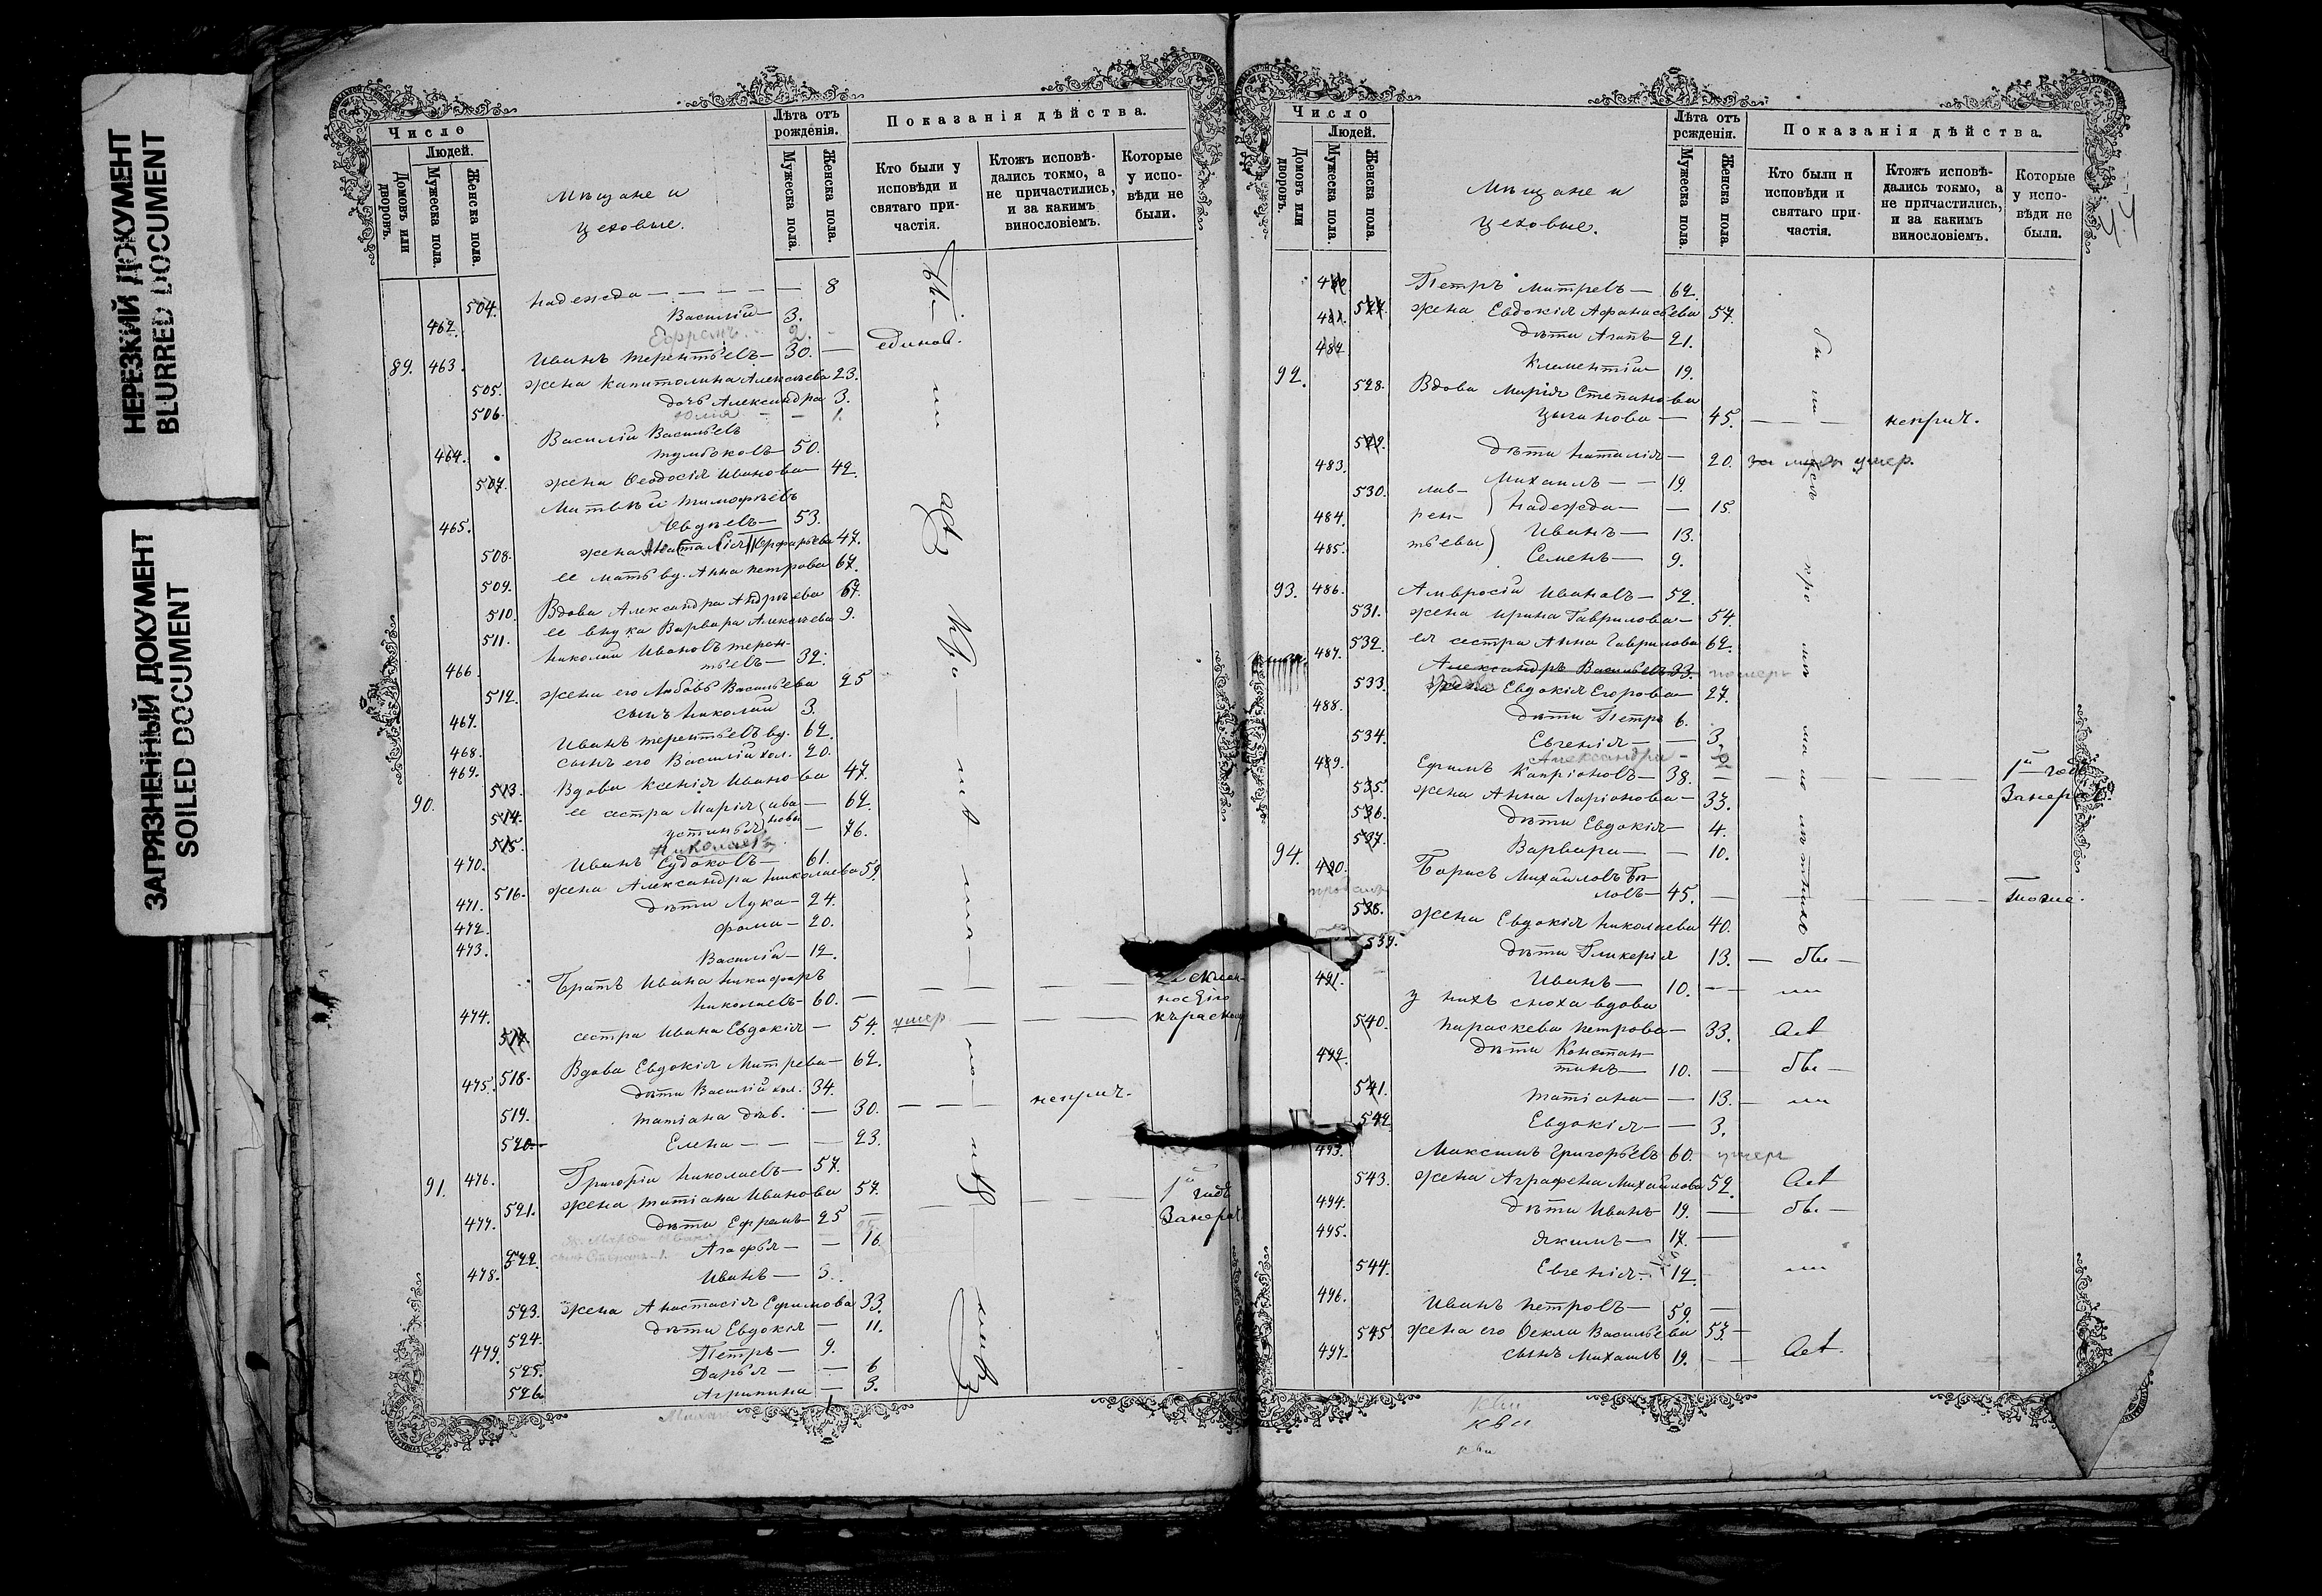 НЕРЕЗКИЙ ДОКУМЕНТ
BLURRED DOCUMENT
ЗАГРЯЗНЕННЫЙ ДОКУМЕНТ
SOILED DOCUMENT
Число
Людей.
Домовъ или дворовъ.
Мужеска пола.
Женска пола.
Мѣщане и
цеховые.
Лѣта отъ рожденія.
Мужеска пола.
Женска пола.
Показанія дѣйства.
Кто были у исповѣди и святаго причастія.
Ктожъ исповѣдались токмо, а не причастились, и за какимъ винословіемъ.
Которые у исповѣди не были.
504. Надежда — 8
462. Василій — 3.
Ефремъ 2.
89. 463. Иванъ Терентьевъ — 30. — единов.
505. жена Капитолина Алексѣева 23.
506. дочь Александра 3.
Юлія — 1.
Василій Васильевъ
464. Тумбоковъ — 50.
507. жена Ѳеодосія Иванова — 42.
Матвѣй Тимофѣевъ
465. Авдѣевъ — 53.
508. жена 47.
509. ее мать вд. Анна Петрова 67.
510. Вдова Александра Андрѣева 67.
511. ее внука Варвара Алексѣева 9.
Николай Ивановъ Терен-
466. тьевъ — 32.
512. жена его Любовь Васильева 25
467. сынъ Николай 3.
468. Иванъ Терентьевъ вд. 62.
469. сынъ его Василій хол. 20.
90. 513. Вдова Ксенія Иванова 47.
514. ее сестра Марія ива- — 62.
515. Устинья новы — 76.
Николаевъ
470. Иванъ Судоковъ — 61.
516. жена Александра Николаева 59.
471. дѣти Лука — 24.
472. Фома — 20.
473. Василій — 12.
Братъ Ивана Никифоръ
474. Николаевъ — 60. —
517. сестра Ивана Евдокія — 54. умер
518. Вдова Евдокія Митрева — 62.
475. дѣти Василій хол. 34.
519. Татіана дѣв. — 30. — неприч.
520. Елена — 23.
91. 476. Григорій Николаевъ — 57.
521. жена Татіана Иванова 57.
477. дѣти Ефремъ — 25
522. Агафья — 16.
478. Иванъ — 3.
523. жена Анастасія Ефимова 33.
524. дѣти Евдокія — 11.
479. Петръ — 9.
525. Дарья — 6
526. Агрипина — 3.
Число
Людей.
Домовъ или дворовъ.
Мужеска пола.
Женска пола.
Мѣщане и
цеховые.
Лѣта отъ рожденія.
Мужеска пола.
Женска пола.
Показанія дѣйства.
Кто были и исповѣди и святаго причастія.
Ктожъ исповѣдались токмо, а не причастились, и за какимъ винословіемъ.
Которые у исповѣди не были.
480 Петръ Митревъ — 62.
527. жена Евдокія Афанасьева 57.
481. дѣти Агапъ — 21.
482 Климентій — 19.
92. 528. Вдова Марія Степанова
Цыганова — 45. — неприч.
529. дѣти Наталія — 20. умер.
483. Михаилъ — 19.
530. лав- Надежда — 15.
484. рен- Иванъ — 13.
485. тьевы Семенъ — 9.
93. 486. Амвросій Ивановъ — 52.
531. жена Ирина Гаврилова — 54.
532. ея сестра Анна Гаврилова 62.
487. Александръ Васильевъ 33. померъ
533. жена Евдокія Егорова — 27.
488. дѣти Петръ 6.
534. Евгенія — 3.
Александра —
489. Ефимъ Капріоновъ — 38. — 1й годъ
535. жена Анна Ларіонова — 33. Занера
536. дѣти Евдокія — 4.
537. Варвара — 10.
94. 490. Борисъ Михайловъ Бѣ-
ловъ — 45. — Тоже.
538. жена Евдокія Николаева 40.
539. дѣти Гликерія 13. — бы —
491. Иванъ — 10. — ли
у нихъ сноха вдова
540. Параскева Петрова — 33.
дѣти Констан-
492. тинъ — 10. — бы —
541. Татіана — 13. — ли
542 Евдокія — 3.
493. Максимъ Григорьевъ 60. умеръ
543. жена Аграфена Михайлова 52.
494. дѣти Иванъ — 19. — бы —
495. Якимъ — 17. —
544. Евгенія — 12. ли
496. Иванъ Петровъ — 59. —
545 жена его Ѳекла Васильева 53 —
497. сынъ Михаилъ 19. —
кви
кви